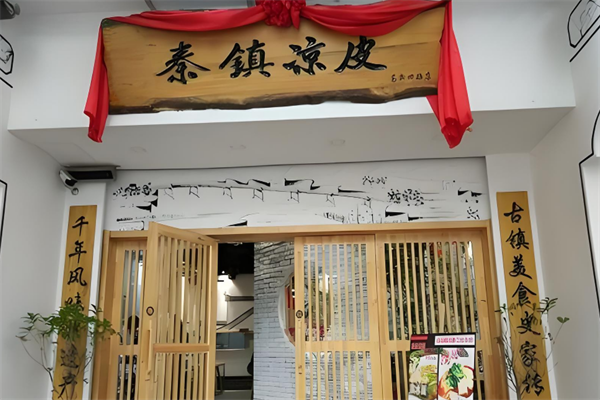 秦镇凉皮
千年风味 遗产
古镇美食 家传